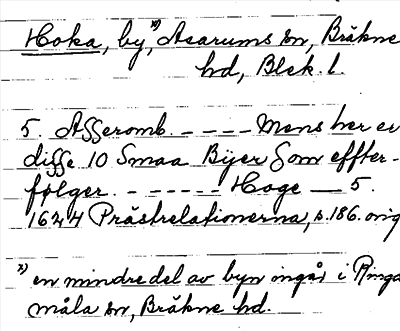 Hoka, by,x) Asarums sn, Bräkne
hd, Blek. l.
5. Asseromb. – – – – Mens her er
disse 10 Smaa Byer Som effter-
følger. – – – – – – Hoge — 5.
1624 Prästrelationerna, s. 186. orig
x) en mindre del av byn ingår i Ringa
måla sn, Bräkne hd.